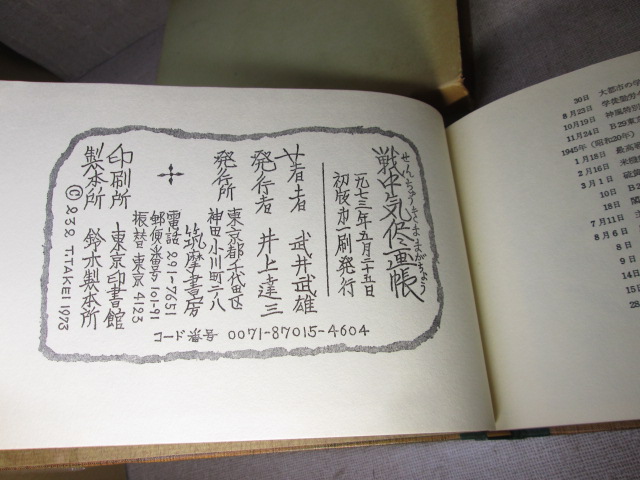 せんちゅうきまままがちょう
戦中気侭画帳
一九七三年五月二十五日
初版第一刷発行
著者 武井武雄
発行者 井上達三
発行所 筑摩書房
東京都千代田区
神田小川町二ノ八
電話 291-7651
郵便番号 101-91
振替 東京 4123
印刷所 東京印書館
製本所 鈴木製本所
© 232 T.TAKEI 1973
コード番号 0071-87015-4604
30日 大都市の学
8月23日 学徒勤労
10月19日 神風特別
11月24日 B29東京
1945年（昭和20年）
1月18日 最高戦
2月16日 米機
3月1日 硫黄
18日 閣
7月11日 主
8月6日 B
8日
9日
14日
15日
28